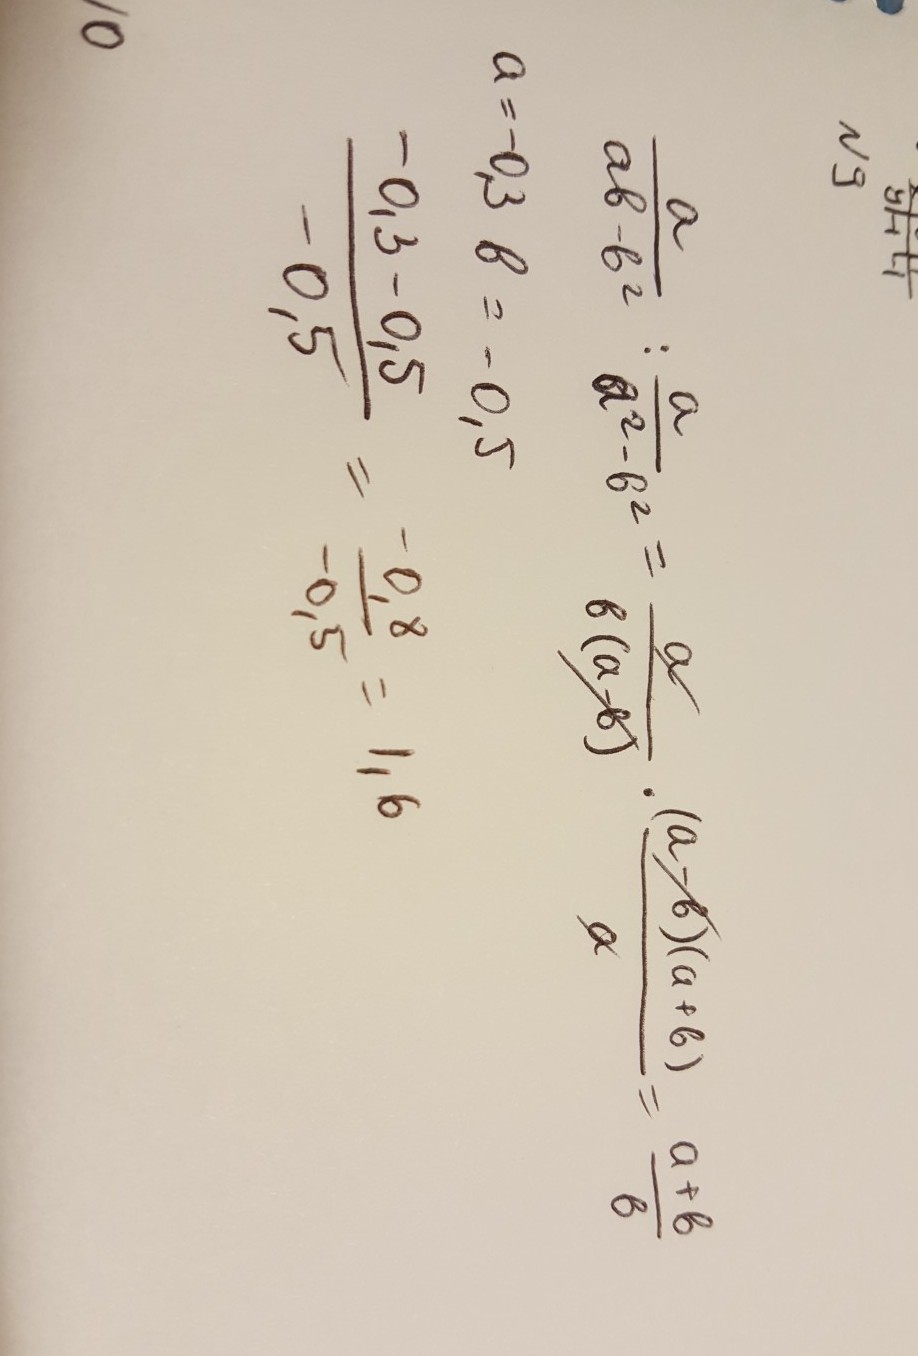 N 9
a/(ab - b²) : a/(a² - b²) = a/(b(a-b)) · (a-b)(a+b)/a = (a+b)/b
a = -0,3 b = -0,5
(-0,3 - 0,5)/(-0,5) = (-0,8)/(-0,5) = 1,6
10